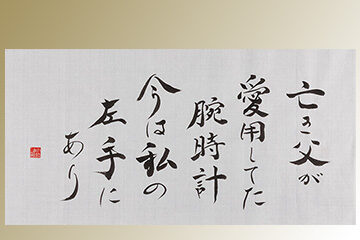 亡き父が
愛用してた
腕時計
今は私の
左手に
あり